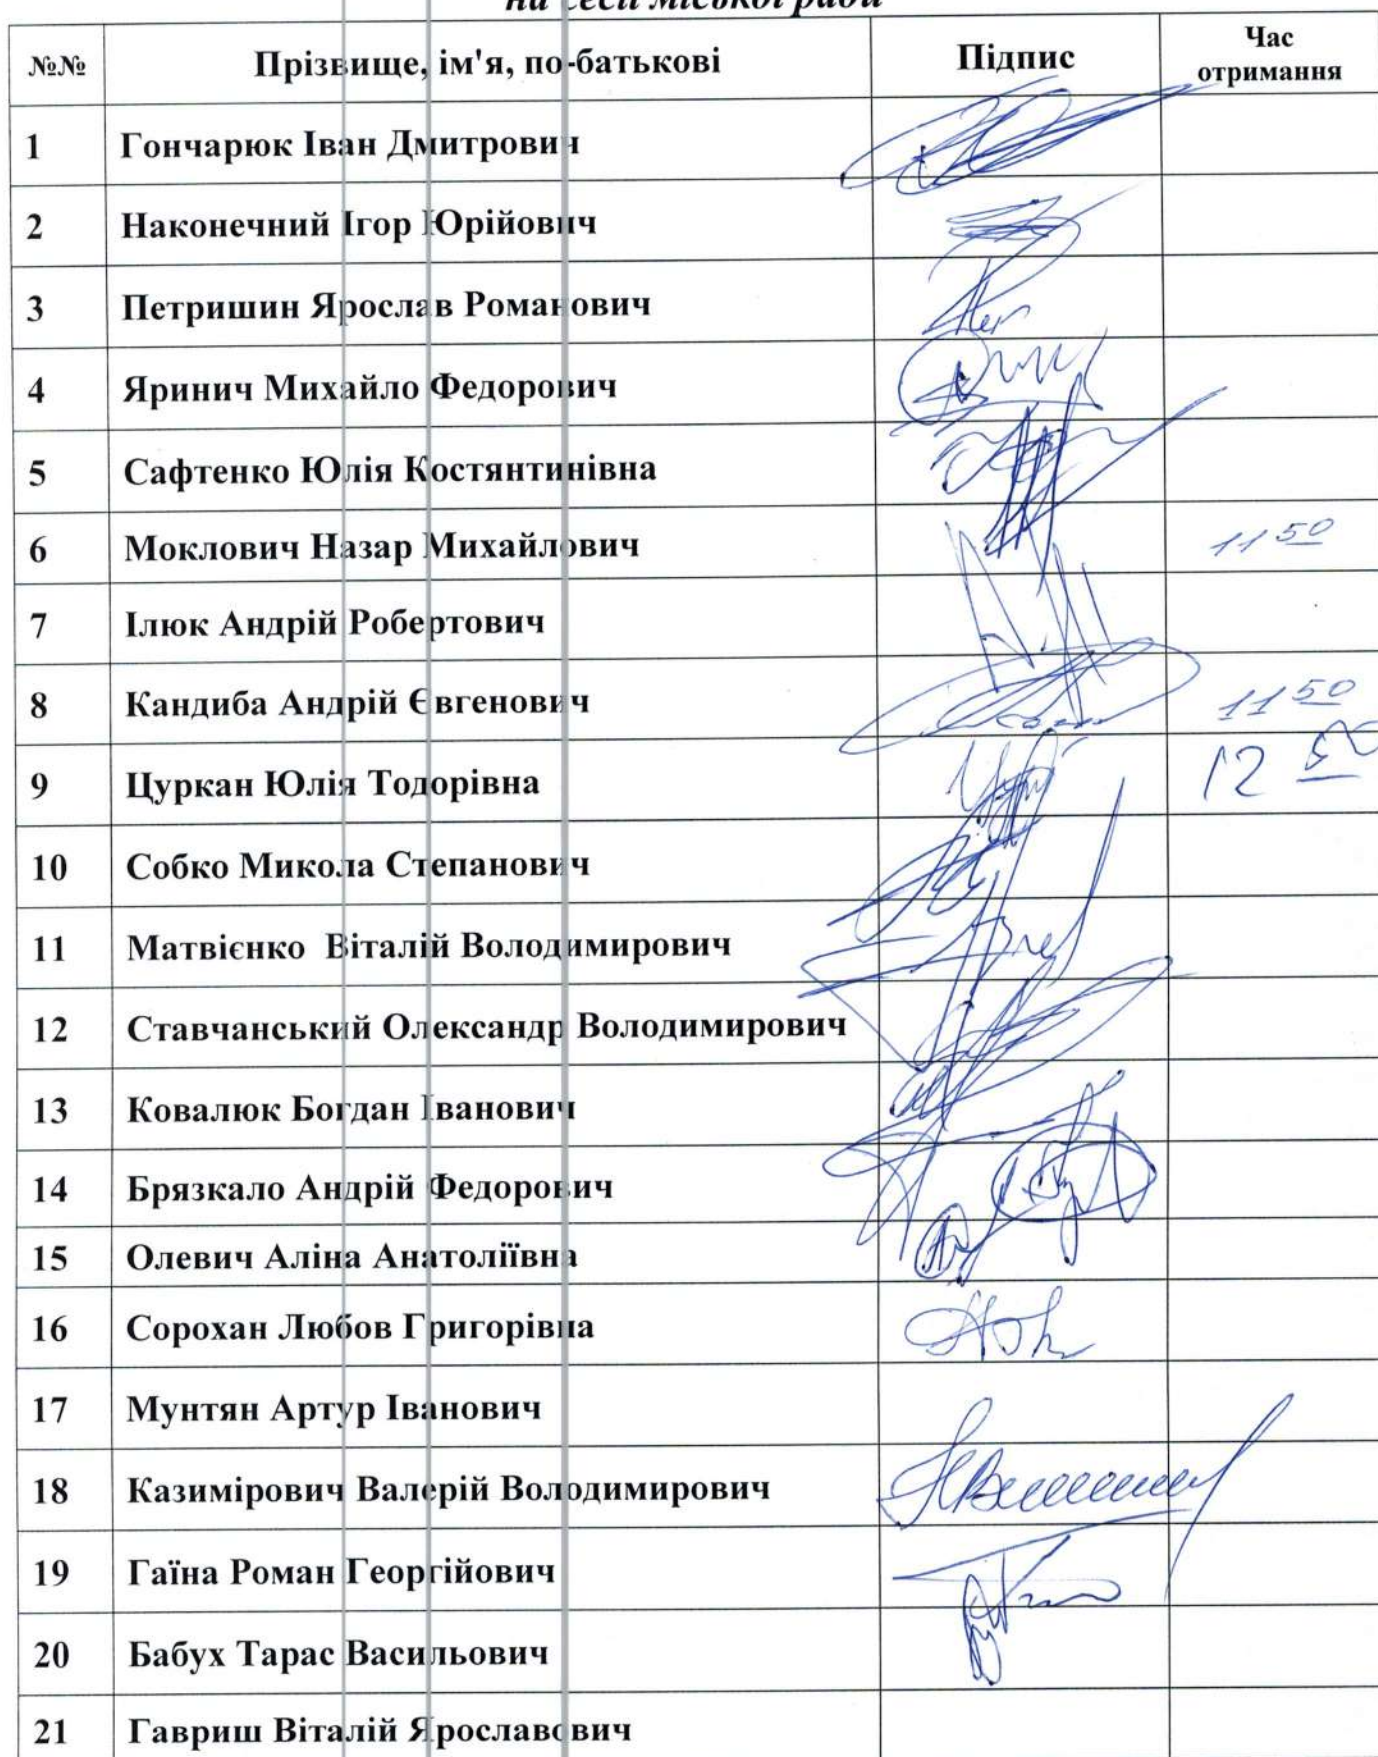 на сесії міської ради
№№ Прізвище, ім'я, по-батькові Підпис Час отримання
1 Гончарюк Іван Дмитрович
2 Наконечний Ігор Юрійович
3 Петришин Ярослав Романович
4 Яринич Михайло Федорович
5 Сафтенко Юлія Костянтинівна
6 Моклович Назар Михайлович 11 50
7 Ілюк Андрій Робертович
8 Кандиба Андрій Євгенович 11 50
9 Цуркан Юлія Тодорівна 12 50
10 Собко Микола Степанович
11 Матвієнко Віталій Володимирович
12 Ставчанський Олександр Володимирович
13 Ковалюк Богдан Іванович
14 Брязкало Андрій Федорович
15 Олевич Аліна Анатоліївна
16 Сорохан Любов Григорівна
17 Мунтян Артур Іванович
18 Казимірович Валерій Володимирович
19 Гаїна Роман Георгійович
20 Бабух Тарас Васильович
21 Гавриш Віталій Ярославович